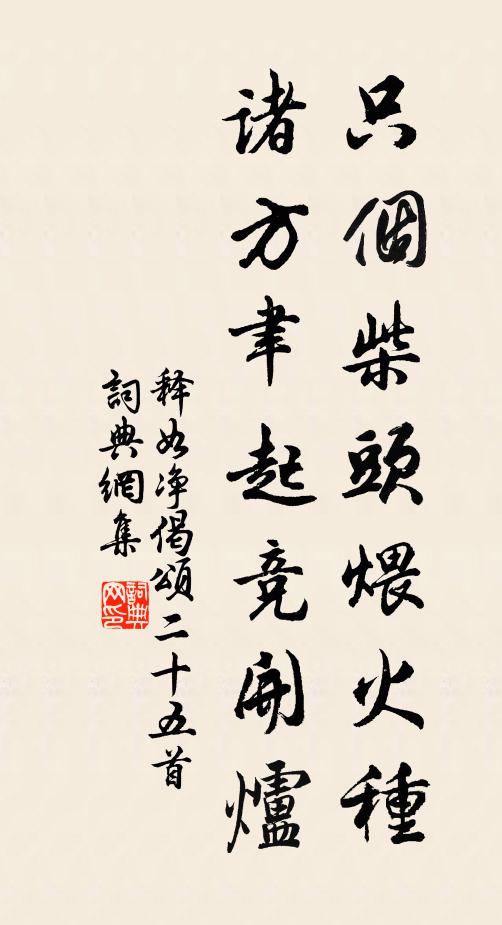 只個柴頭煨火種
諸方聿起竞開爐
释如净偈頌二十五首
詞典網集
詞典網印